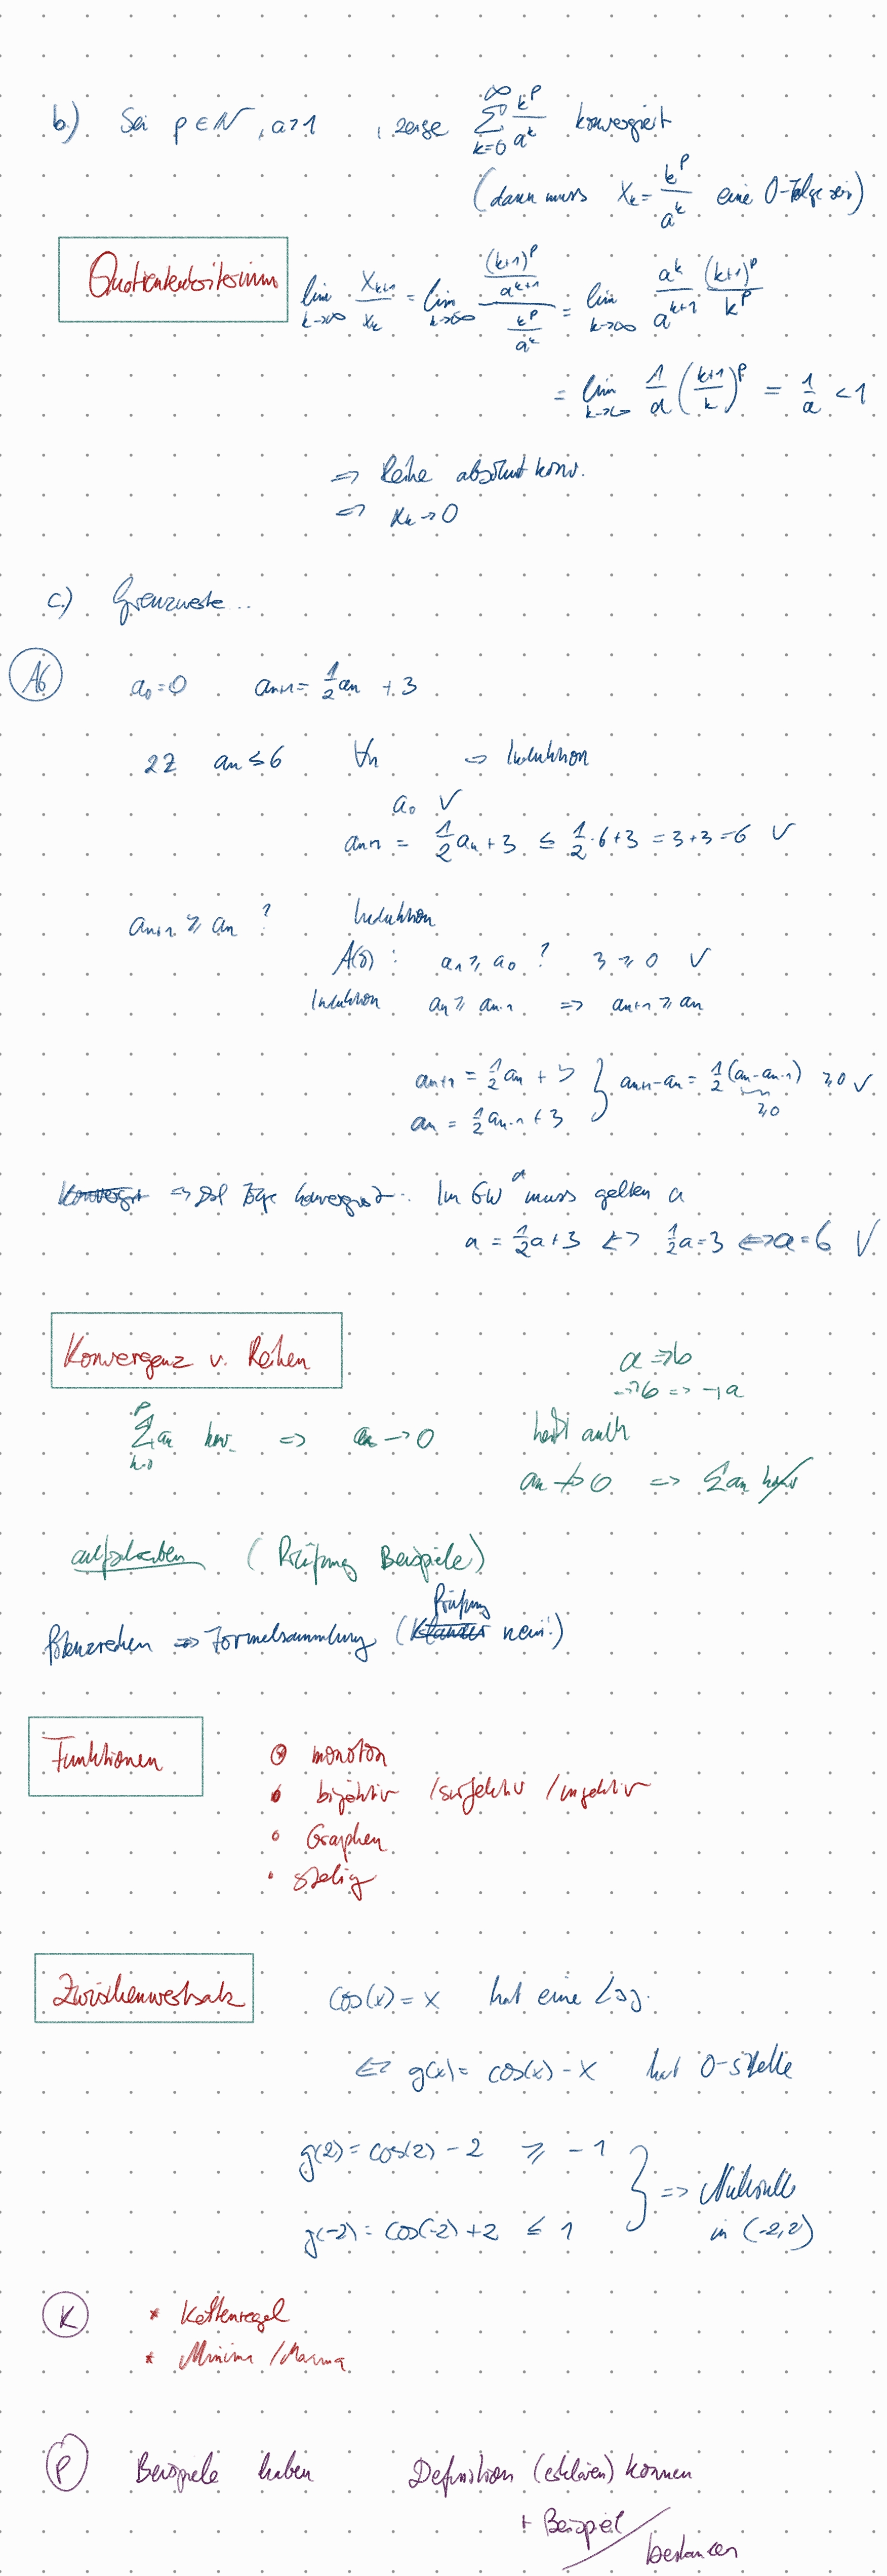 b.) Sei p ∈ N, a>1, zeige ∑_{k=0}^{∞} k^p/a^k konvergiert
(dann muss x_k = k^p/a^k eine 0-Folge sein)
Quotientenkriterium lim_{k→∞} x_{k+1}/x_k = lim_{k→∞} ((k+1)^p/a^{k+1})/(k^p/a^k) = lim_{k→∞} a^k/a^{k+1} (k+1)^p/k^p
= lim_{k→∞} 1/a ((k+1)/k)^p = 1/a < 1
⇒ Reihe absolut konv.
⇒ x_k → 0
c.) Grenzwerte...
A6 a_0 = 0 a_{n+1} = 1/2 a_n + 3
zz a_n ≤ 6 ∀n ⇒ Induktion
a_0 ✓
a_{n+1} = 1/2 a_n + 3 ≤ 1/2 · 6 + 3 = 3+3 = 6 ✓
a_{n+1} ≥ a_n ? Induktion
A(0): a_1 ≥ a_0 ? 3 ≥ 0 ✓
Induktion a_n ≥ a_{n-1} ⇒ a_{n+1} ≥ a_n
a_{n+1} = 1/2 a_n + 3 } a_{n+1} - a_n = 1/2 (a_n - a_{n-1}) ≥ 0 ✓
a_n = 1/2 a_{n-1} + 3 ≥ 0
⇒ Folge konvergiert. Im GW a muss gelten a
a = 1/2 a + 3 ⇔ 1/2 a = 3 ⇔ a = 6 ✓
Konvergenz v. Reihen
a ⇒ b
¬b ⇒ ¬a
∑ a_n konv. ⇒ a_n → 0 heißt auch
a_n ↛ 0 ⇒ ∑ a_n konv
aufschreiben (Prüfung Beispiele)
Prüfung
Potenzreihen ⇒ Formelsammlung (Klausur nein!)
Funktionen
• monoton
• bijektiv / surjektiv / injektiv
• Graphen
• stetig
Zwischenwertsatz cos(x) = x hat eine Lsg.
⇔ g(x) = cos(x) - x hat 0-stelle
g(2) = cos(2) - 2 ≥ -1
g(-2) = cos(-2) + 2 ≤ 1 } ⇒ Nullstelle
in (-2,2)
K * Kettenregel
* Minima / Maxima
P Beispiele haben Definition (erklären) können
+ Beispiel